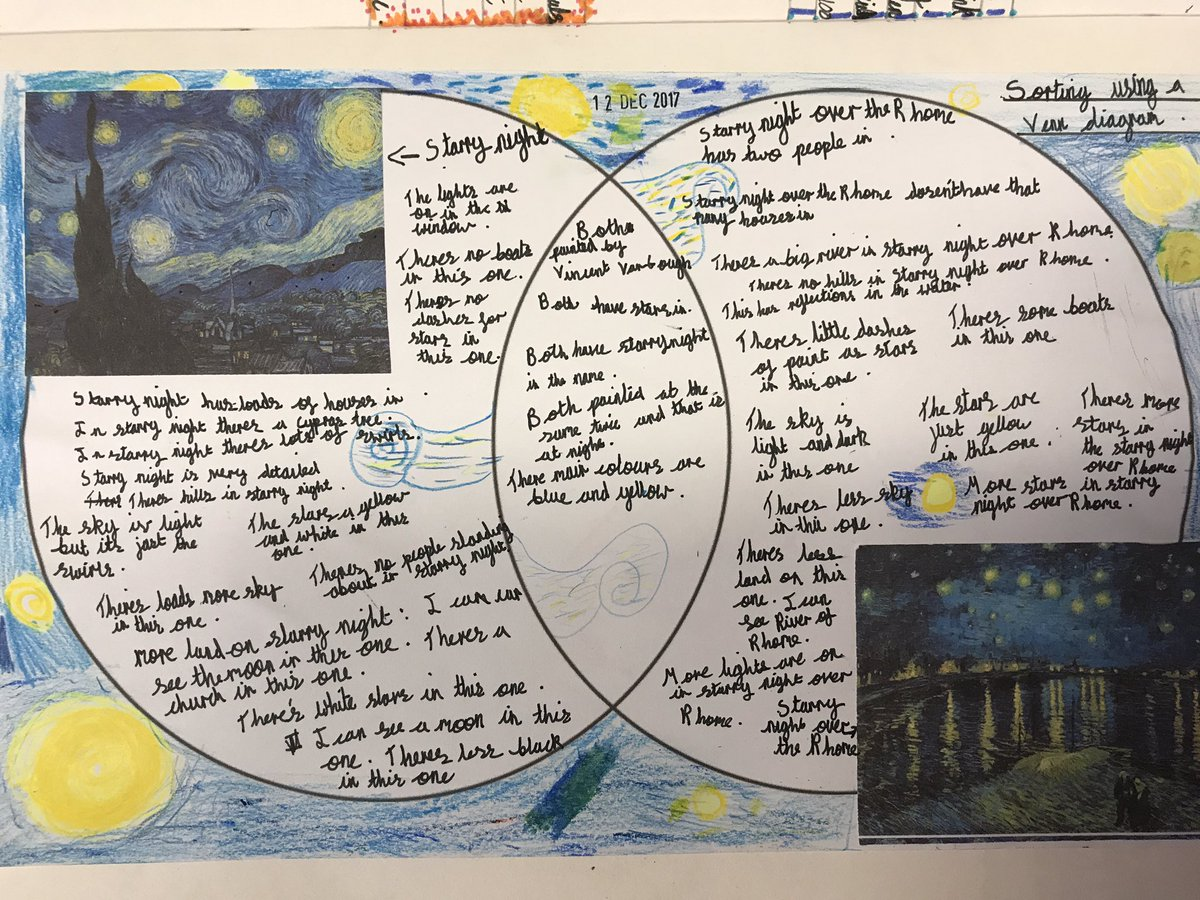 12 DEC 2017
Sorting using a
Venn diagram.
<- Starry night
The lights are
on in the
window.
Theres no boats
in this one.
Theres no
dashes for
stars in
this one.
Starry night has loads of houses in.
In starry night theres a cypras tree.
In starry night theres lots of swirls.
Starry night is very detailed
Theres hills in starry night.
The sky is light
but its just the
swirls.
The stars is yellow
and white in this
one.
Theres loads more sky
in this one.
Theres no people standing
about in starry night
more land on starry night. I can
see the moon in this one. There's a
church in this one.
There's white stars in this one.
I can see a moon in this
one. Theres less black
in this one
Both
painted by
Vincent Van Gough
Both have stars in.
Both have starry night
in the name.
Both painted at the
same time and that is
at night.
There main colours are
blue and yellow.
Starry night over the Rhome
has two people in
Starry night over the Rhome doesen't have that
many houses in
Theres a big river in starry night over Rhome.
Theres no hills in starry night over Rhome.
This has reflections in the water.
Theres little dashes
of paint as stars
in this one.
Theres some boats
in this one
The sky is
light and dark
in this one
The stars are
just yellow
in this one.
Theres more
stars in
the starry night
over Rhome
Theres less sky
in this one.
More stars in starry
night over Rhome.
Theres less
land on this
one. I can
see River of
Rhome.
More lights are on
in starry night over
Rhome.
Starry
night over
the Rhome